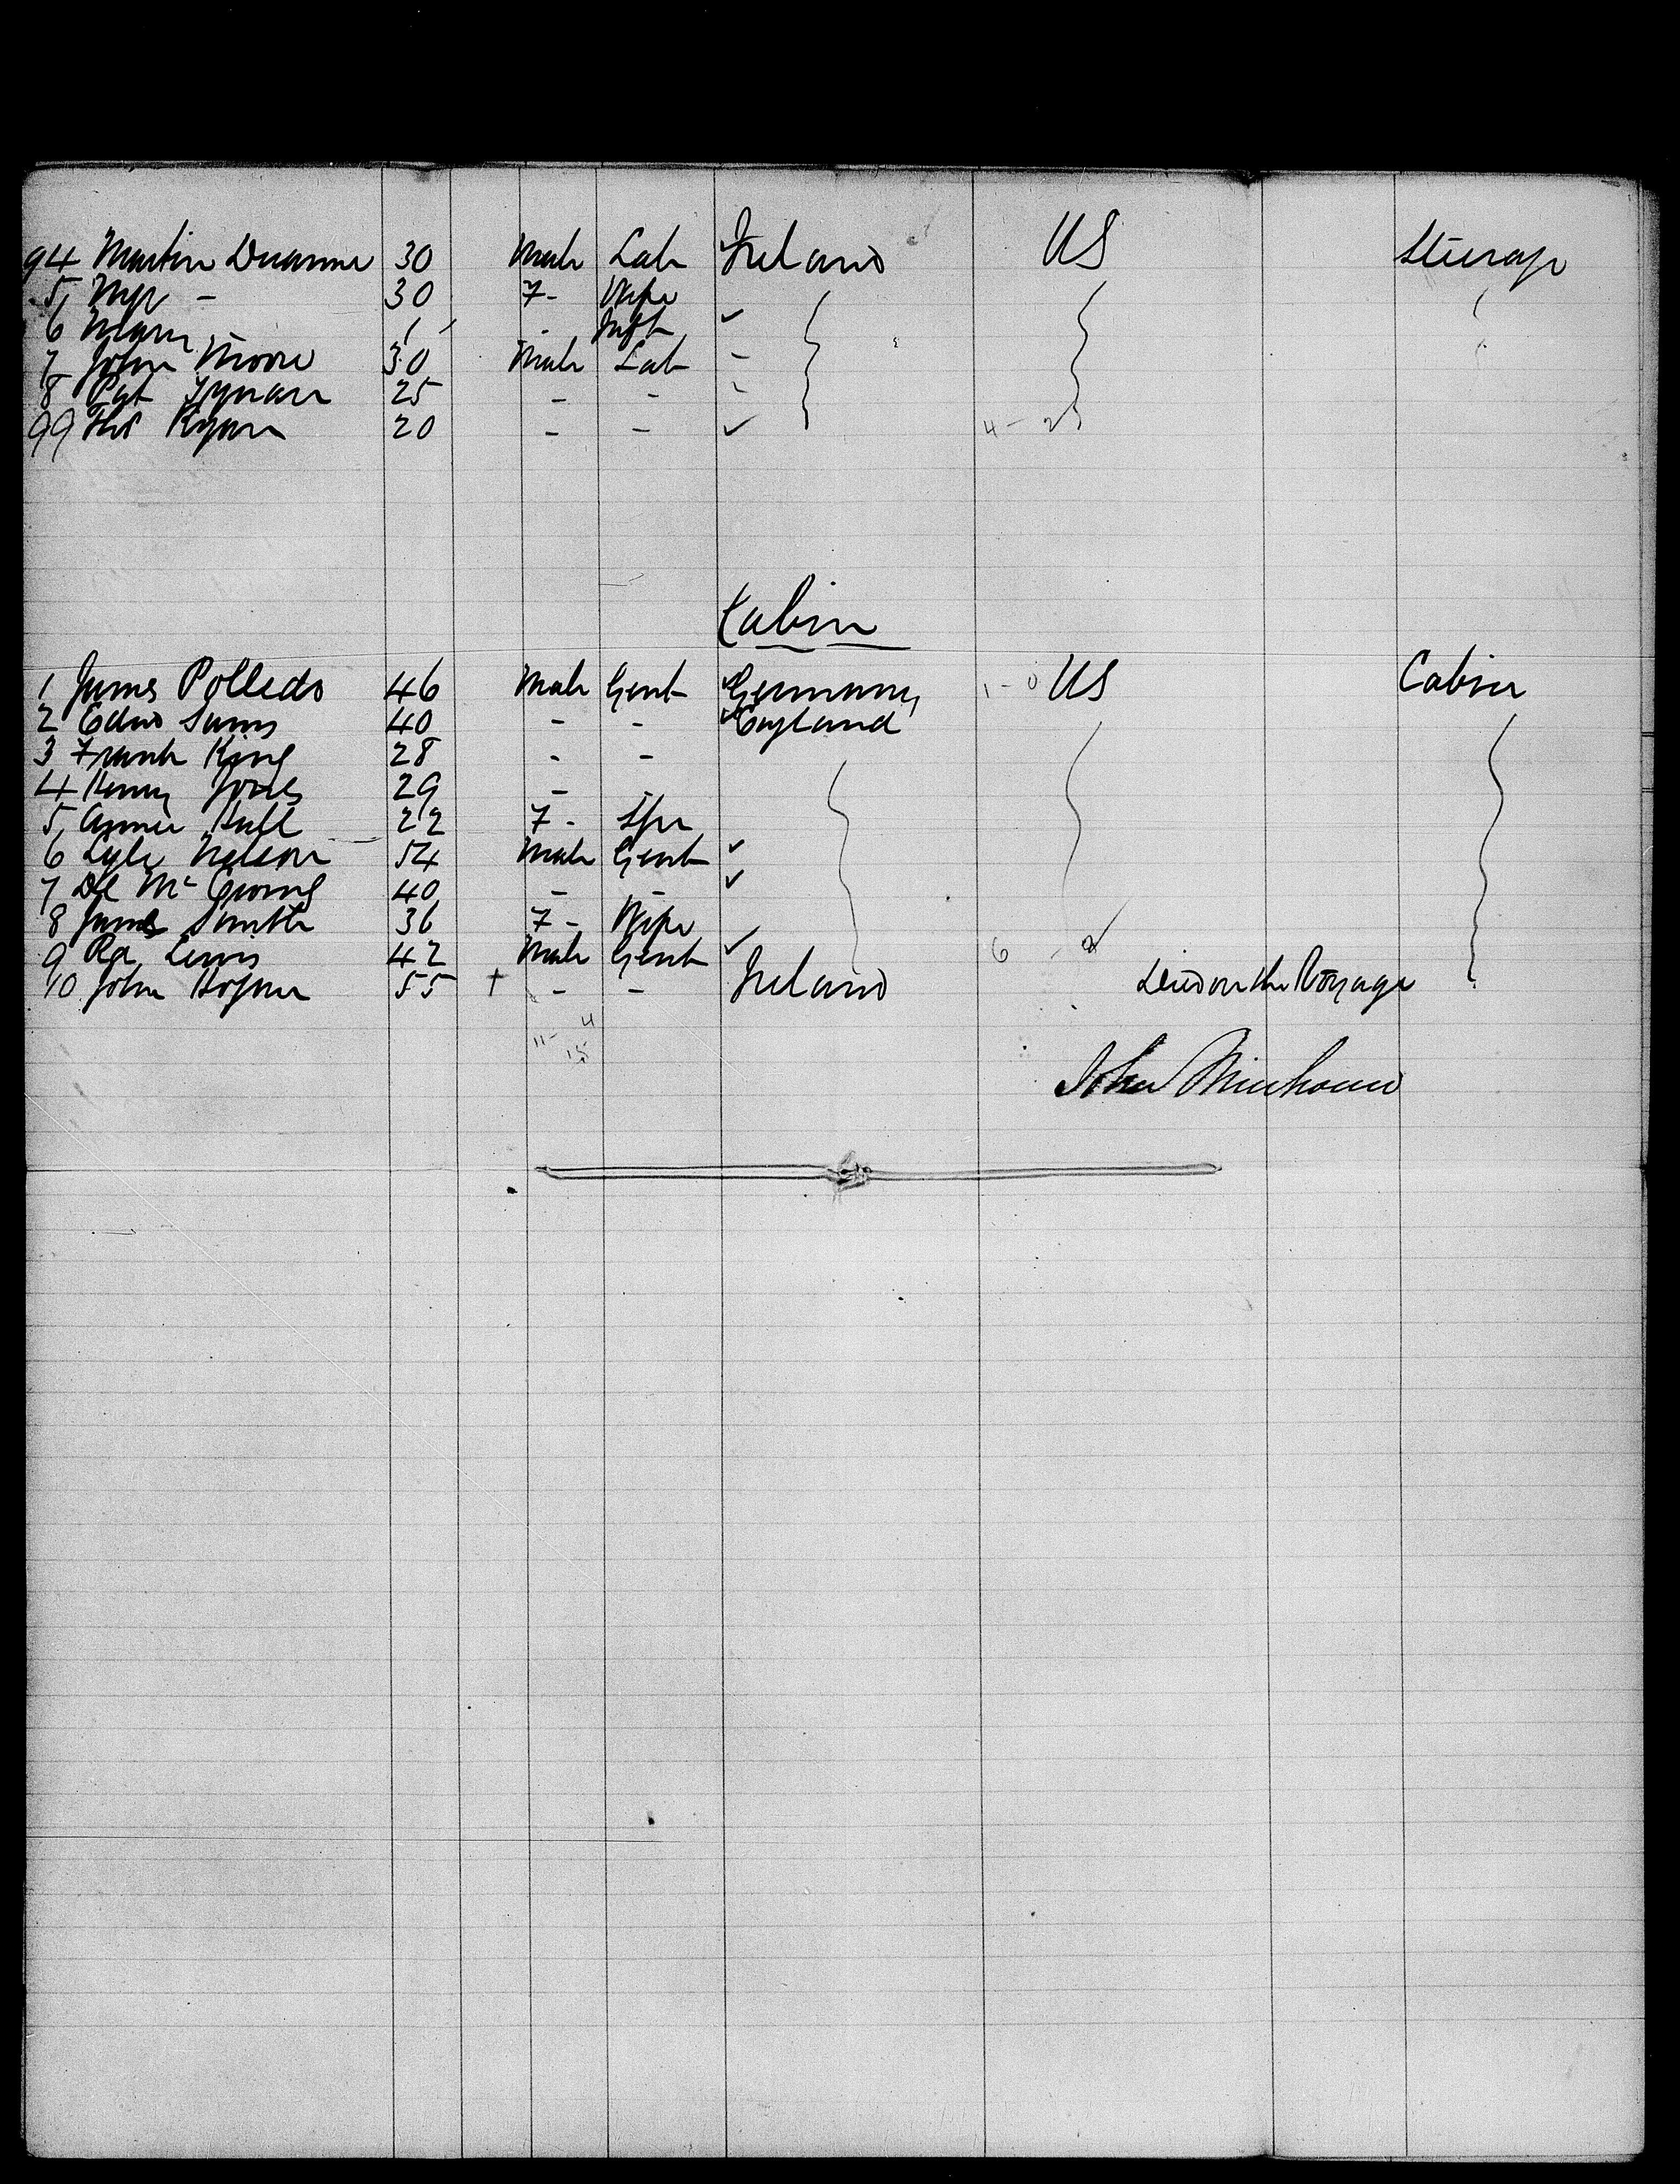 94 Martin 30 Male Lab Ireland US Steerage
5 30 F - Wife
6 1 - Inft
7 John Moore 30 Male Lab -
8 Pat 25 - - -
99 Ths Ryan 20 - - 4 - 2
Cabin
1 James Polledo 46 Male Gent Germany 1 - 0 US Cabin
2 Edwd Sams 40 - - England
3 Frank King 28 - -
4 Henry Jones 29 - -
5 Annie Hall 22 F - Spr
6 Lyle Nelson 54 Male Gent
7 Mc 40 - -
8 James Smith 36 F - Wife
9 Lewis 42 Male Gent 6 - 2
10 John Hogan 55 + - - Ireland Died on the Voyage
11 - 4
15
John